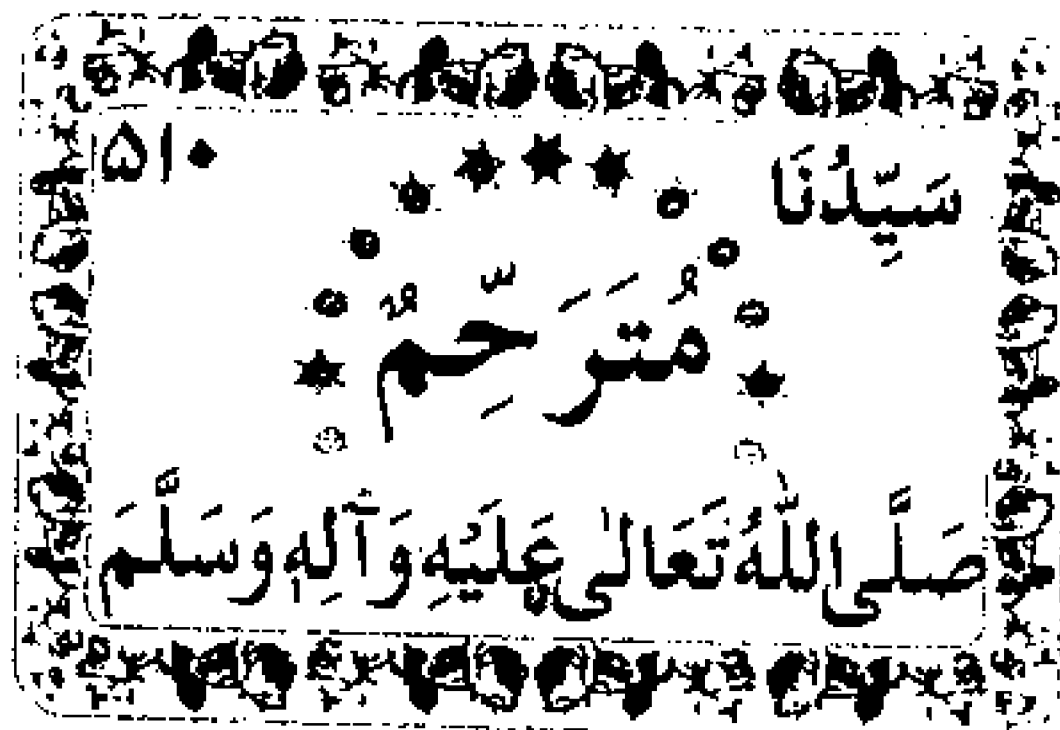 ۵۱۰
سَيِّدُنَا
مُتَرَحِّمٌ
صَلَّى اللّٰهُ تَعَالٰى عَلَيْهِ وَآلِهٖ وَسَلَّمَ